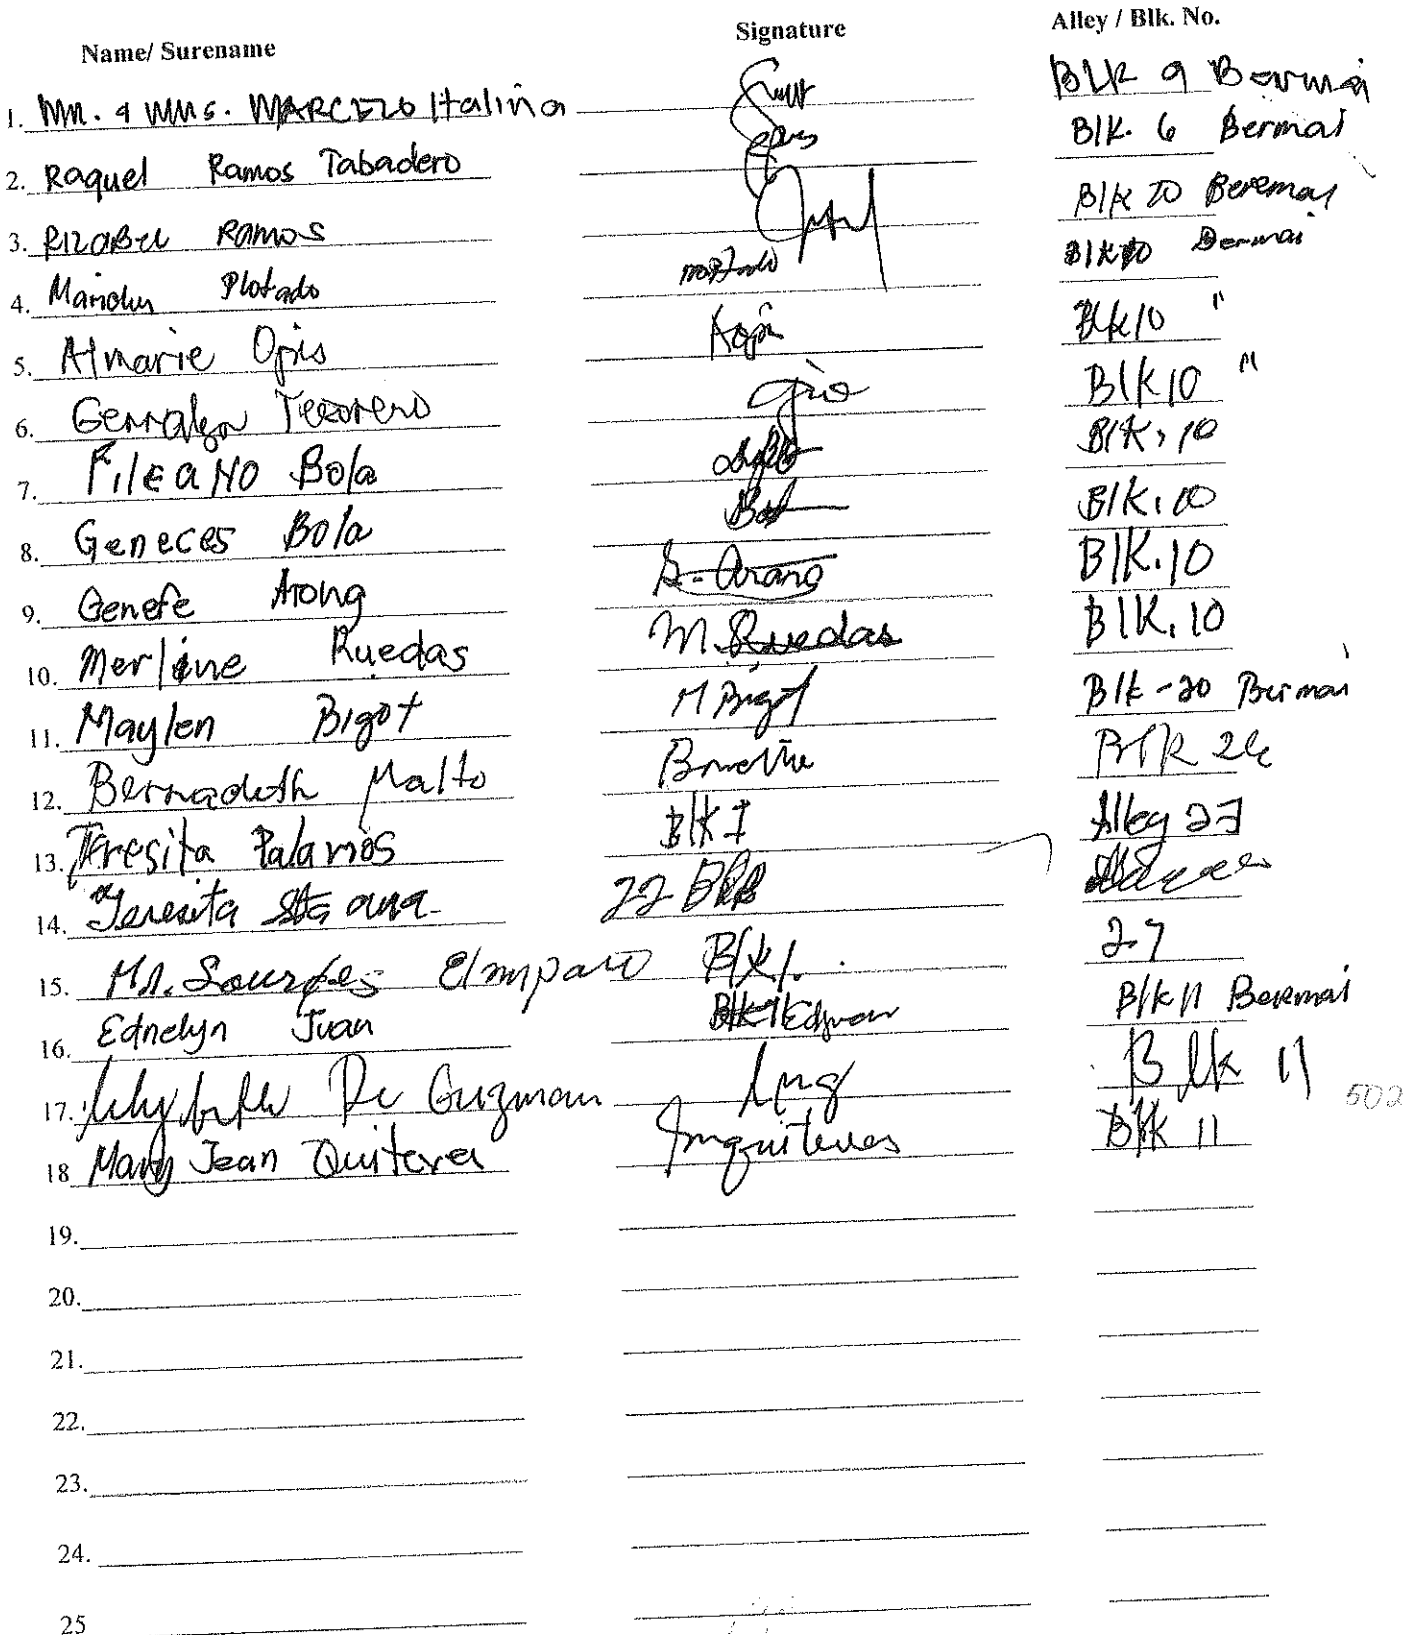 Name/ Surename Signature Alley / Blk. No.
1. Mr. & Mrs. MARCELO Italiña BLK 9 Bermai
2. Raquel Ramos Tabadero Blk. 6 Bermai
3. Rizabel Ramos Blk 20 Beremai
4. Plotado Blk 10 Bermai
5. Almarie Opis Blk 10 "
6. Tezorero Blk 10 "
7. FileaNO Bola Blk, 10
8. Geneces Bola Blk, 10
9. Genefe Arong Blk. 10
10. Merline Ruedas M. Ruedas Blk, 10
11. Maylen Bigot M Bigot Blk - 20 Bermai
12. Bernadeth Malto Blk
13. Teresita Palarios Blk 7 Alley 27
14. Teresita Sta ana 22 Blk
15. Ma. Lourdes Elmparo Blk 1. 27
16. Ednelyn Juan Blk 11 Bermai
17. De Guzman Blk 11
502
18 Mary Jean Quiteves Jmquiteves Blk 11
19.
20.
21.
22.
23.
24.
25